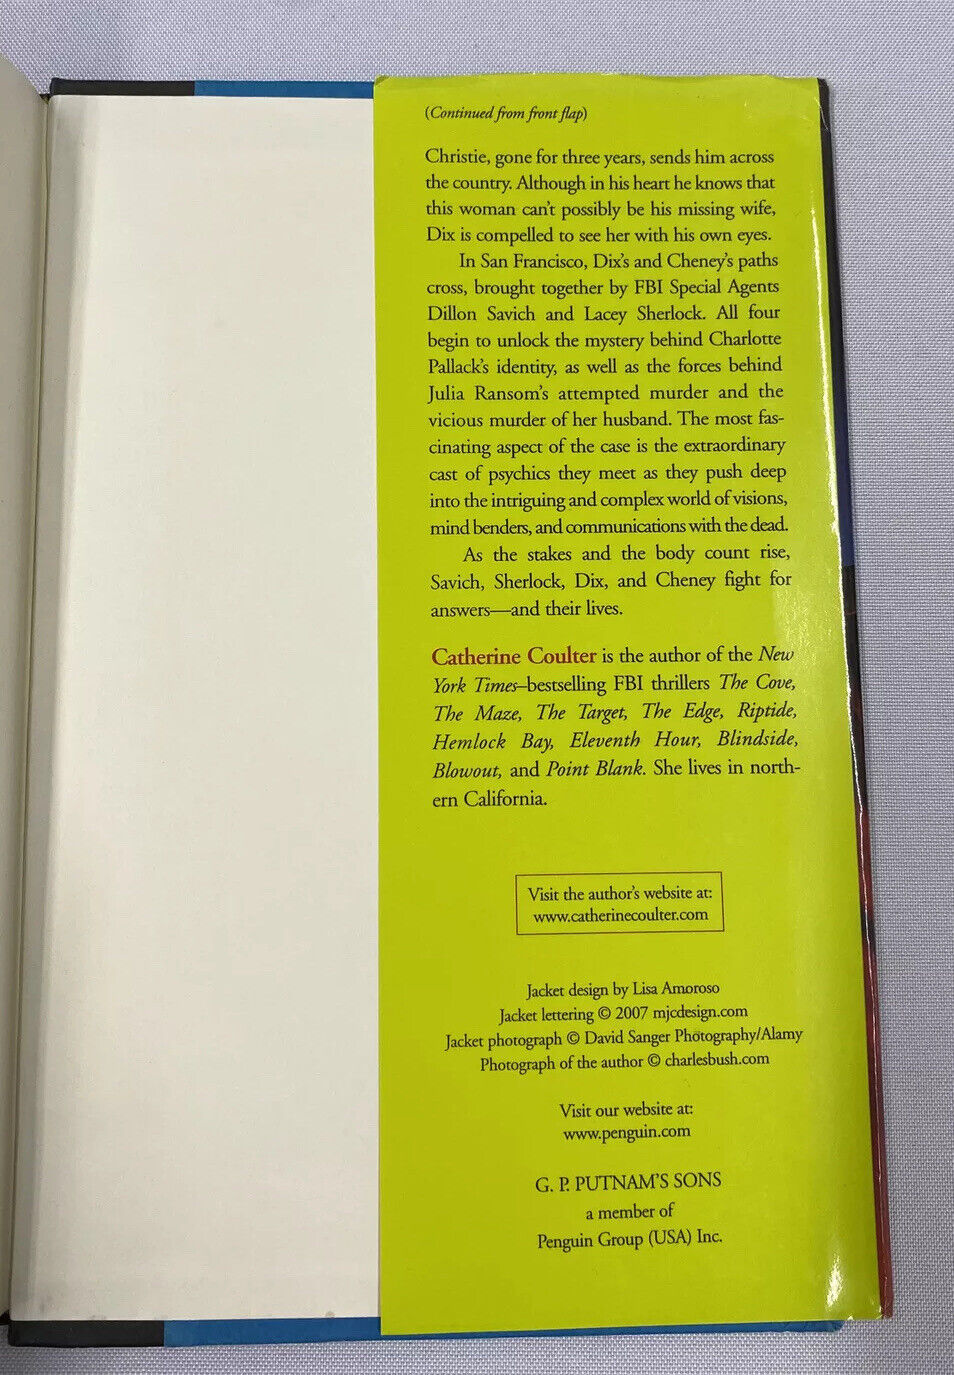 (Continued from front flap)
Christie, gone for three years, sends him across
the country. Although in his heart he knows that
this woman can't possibly be his missing wife,
Dix is compelled to see her with his own eyes.
In San Francisco, Dix's and Cheney's paths
cross, brought together by FBI Special Agents
Dillon Savich and Lacey Sherlock. All four
begin to unlock the mystery behind Charlotte
Pallack's identity, as well as the forces behind
Julia Ransom's attempted murder and the
vicious murder of her husband. The most fas-
cinating aspect of the case is the extraordinary
cast of psychics they meet as they push deep
into the intriguing and complex world of visions,
mind benders, and communications with the dead.
As the stakes and the body count rise,
Savich, Sherlock, Dix, and Cheney fight for
answers—and their lives.
Catherine Coulter is the author of the New
York Times–bestselling FBI thrillers The Cove,
The Maze, The Target, The Edge, Riptide,
Hemlock Bay, Eleventh Hour, Blindside,
Blowout, and Point Blank. She lives in north-
ern California.
Visit the author's website at:
www.catherinecoulter.com
Jacket design by Lisa Amoroso
Jacket lettering © 2007 mjcdesign.com
Jacket photograph © David Sanger Photography/Alamy
Photograph of the author © charlesbush.com
Visit our website at:
www.penguin.com
G. P. PUTNAM'S SONS
a member of
Penguin Group (USA) Inc.